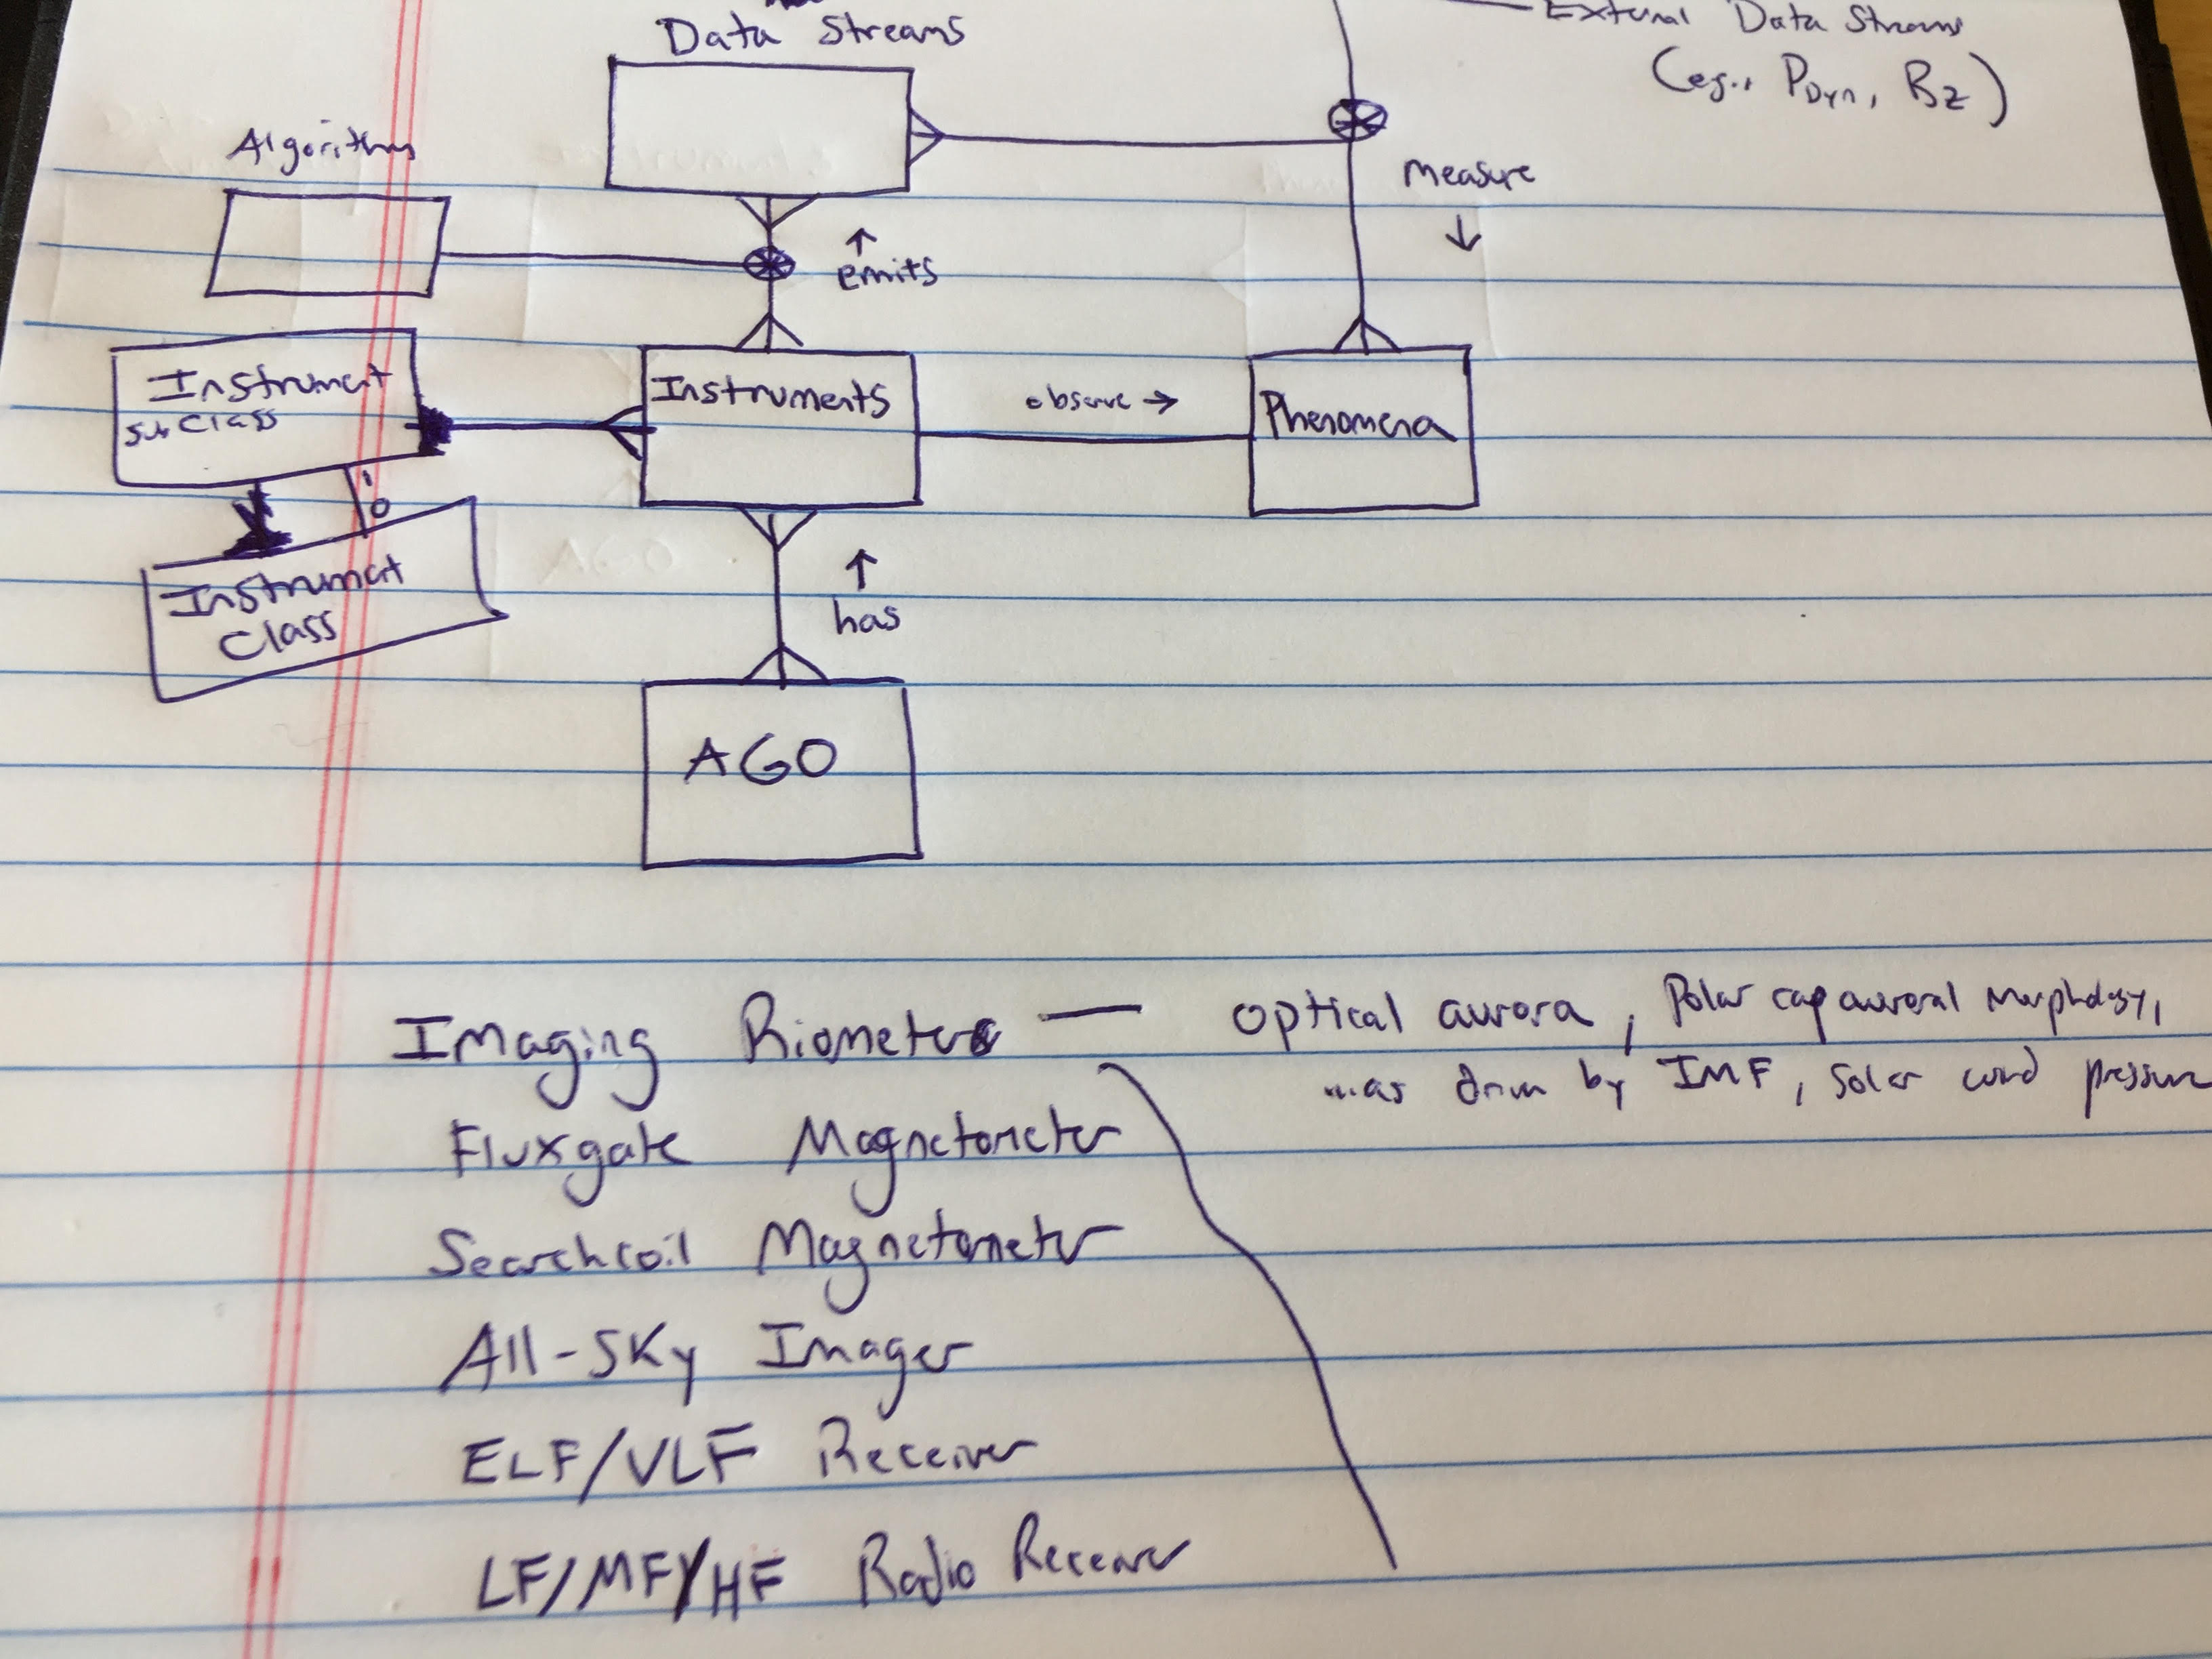 External Data Streams
Data Streams
(eg., PDyn, Bz)
Algorithms
measure
↓
↑
emits
Instrument
subclass
Instruments
observe →
Phenomena
1
0
Instrument
Class
↑
has
AGO
Imaging Riometer — optical aurora, Polar cap auroral morphology,
...as driven by IMF, solar wind pressure
Fluxgate Magnetometer
Searchcoil Magnetometer
All-Sky Imager
ELF/VLF Receiver
LF/MF/HF Radio Receiver